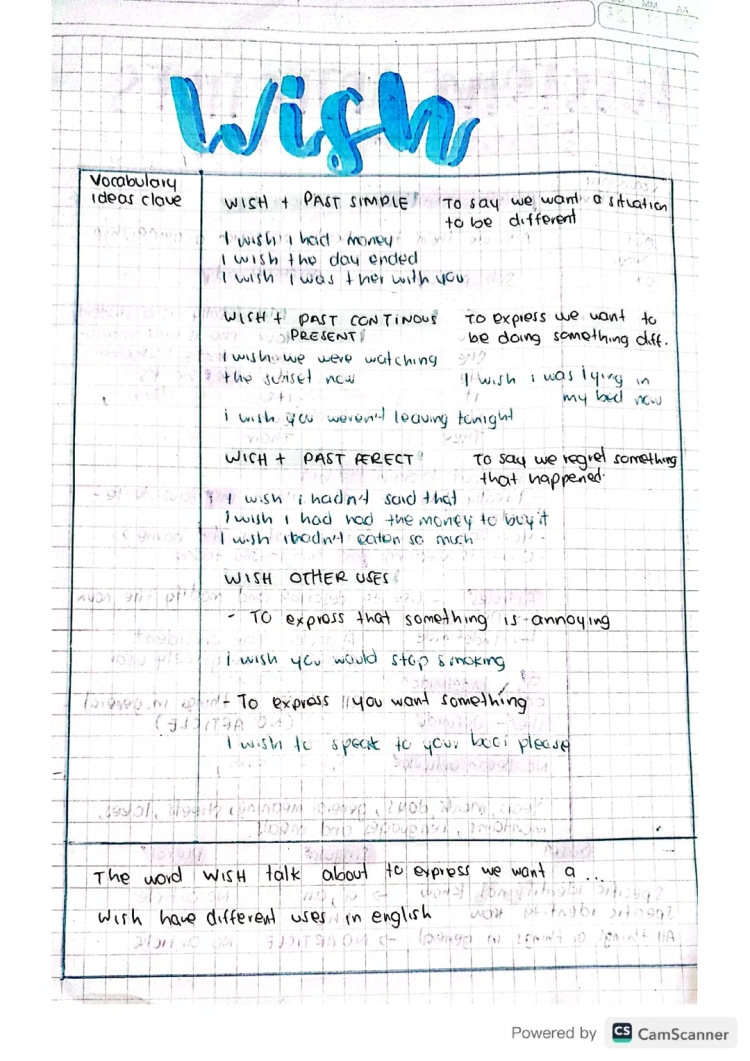 Wish
Vocabulary
ideas clave
WISH + PAST SIMPLE To say we want a situation
to be different
I wish i had money
I wish the day ended
I wish I was ther with you
WISH + PAST CONTINOUS To express we want to
PRESENT be doing something diff.
I wish we were watching
the sunset now I wish i was lying in
my bed now
i wish you weren't leaving tonight
WISH + PAST PERECT To say we regret something
that happened.
I wish i hadn't said that
I wish I had had the money to buy it
I wish i hadn't eaton so much
WISH OTHER USES
- To express that something is annoying
i wish you would stop smoking
- To express you want something
I wish to speak to your please
The word WISH talk about to express we want a ...
Wish have different uses in english
Powered by CS CamScanner